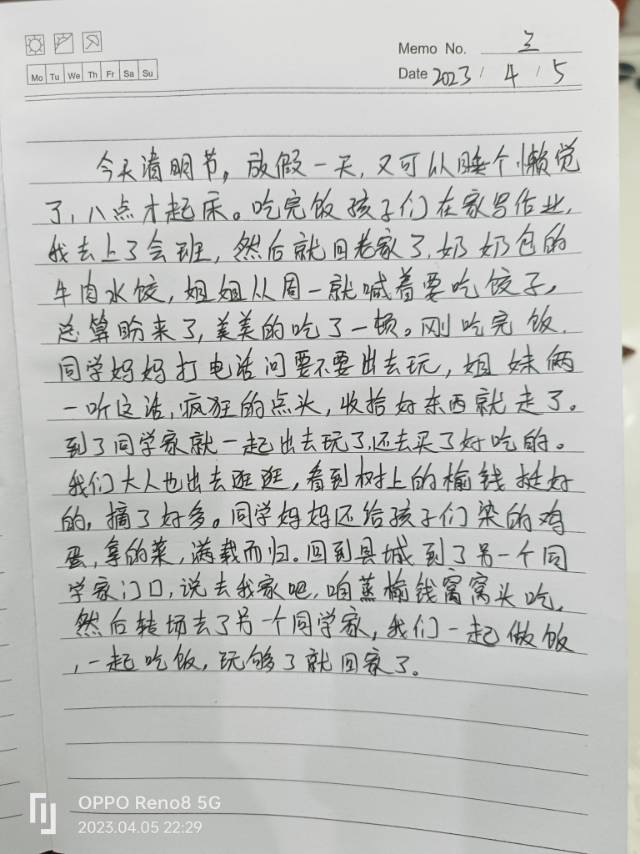 Memo No. 三
Mo Tu We Th Fr Sa Su
Date 2023 / 4 / 5
今天清明节，放假一天，又可以睡个懒觉
了，八点才起床。吃完饭孩子们在家写作业，
我去上了会班，然后就回老家了，奶奶包的
牛肉水饺，姐姐从周一就喊着要吃饺子，
总算盼来了，美美的吃了一顿。刚吃完饭，
同学妈妈打电话问要不要出去玩，姐妹俩
一听这话，疯狂的点头，收拾好东西就走了。
到了同学家就一起出去玩了，还去买了好吃的。
我们大人也出去逛逛，看到树上的榆钱挺好
的，摘了好多。同学妈妈还给孩子们染的鸡
蛋，拿的菜，满载而归。回到县城到了另一个同
学家门口，说去我家吧，咱蒸榆钱窝窝头吃，
然后转场去了另一个同学家，我们一起做饭
，一起吃饭，玩够了就回家了。
OPPO Reno8 5G
2023.04.05 22:29